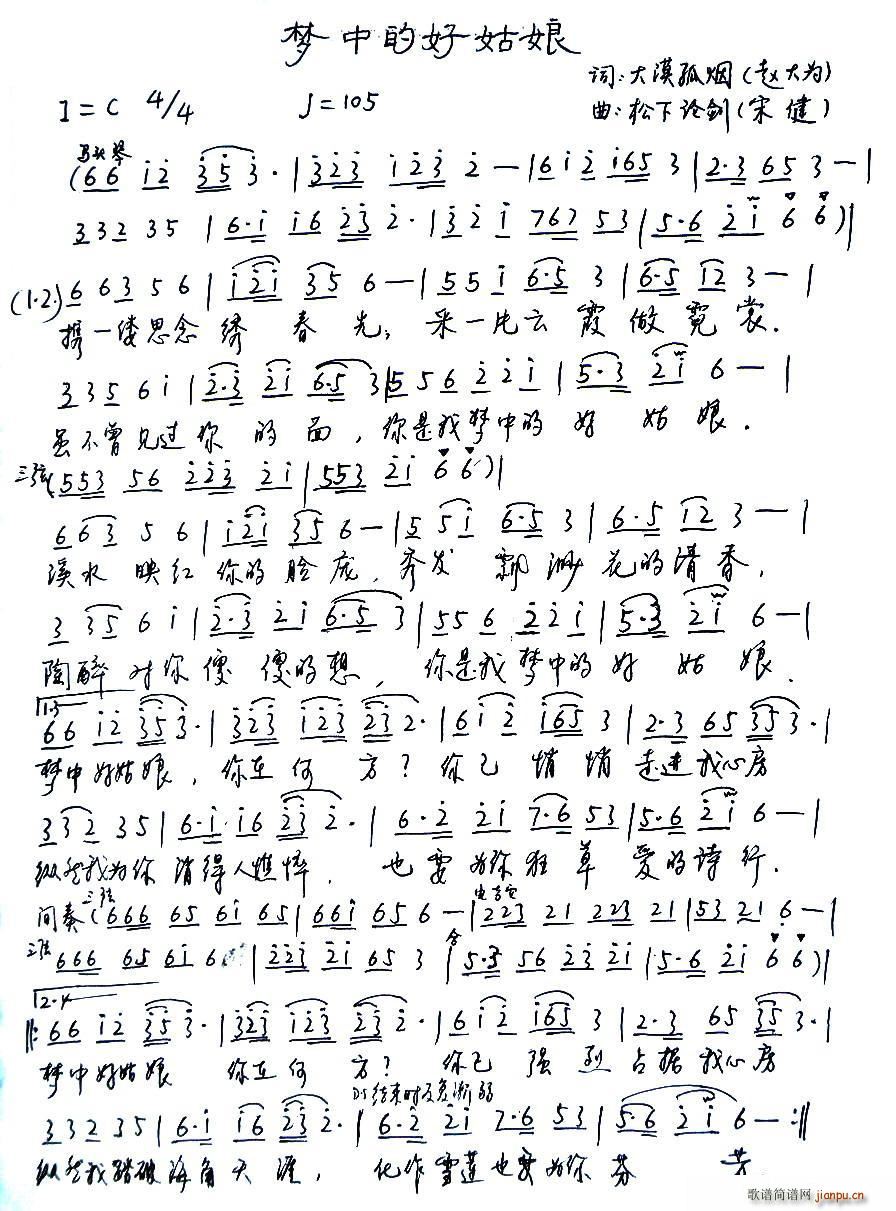 梦中的好姑娘
词:大漠孤烟(赵大为)
1=C 4/4 ♩=105 曲:松下论剑(宋健)
马头琴
(66 i2 353·|323 123 2—|6i2 i65 3|2·3 65 3—|
332 35|6·i i6 23 2·|32i 767 53|5·6 2i 6 6)|
(1·2.) 6 63 5 6|i2i 35 6—|55i 6·5 3|6·5 i2 3—|
携一缕思念绣春光,采一片云霞做霓裳.
335 6i|2·3 2i 6·5 3|556 22i|5·3 2i 6—|
虽不曾见过你的面,你是我梦中的好姑娘.
三弦(553 56 223 2i|553 2i 6 6)|
663 5 6|i2i 35 6—|5 5i 6·5 3|6·5 i2 3—|
溪水映红你的脸庞,秀发飘渺花的清香,
3 35 6i|2·3 2i 6·5 3|55 6 22i|5·3 2i 6—|
陶醉对你傻傻的想,你是我梦中的好姑娘.
1.3
66 i2 353·|323 123 23 2·|6i2 i65 3|2·3 65 353·|
梦中好姑娘,你在何方?你已悄悄走进我心房
332 35|6·i·i6 23 2·|6·2 2i 7·6 53|5·6 2i 6—|
纵然我为你消得人憔悴,也要为你狂草爱的诗行.
间奏(三弦 666 65 6i 65|66i 65 6—|223 21 223 21|53 21 6—|
三弦 666 65 6i 6|223 2i 65 3|合 5·3 56 23 2i|5·6 2i 6 6)|
2.4
‖:66 i2 353·|323 123 23 2·|6i2 i65 3|2·3 65 353·|
梦中好姑娘 你在何方?你已强烈占据我心房
DS结束时反复渐弱
332 35|6·i i6 23 2·|6·2 2i 7·6 53|5·6 2i 6—:‖
纵然我踏破海角天涯,化作雪莲也要为你芬芳
歌谱简谱网 jianpu.cn